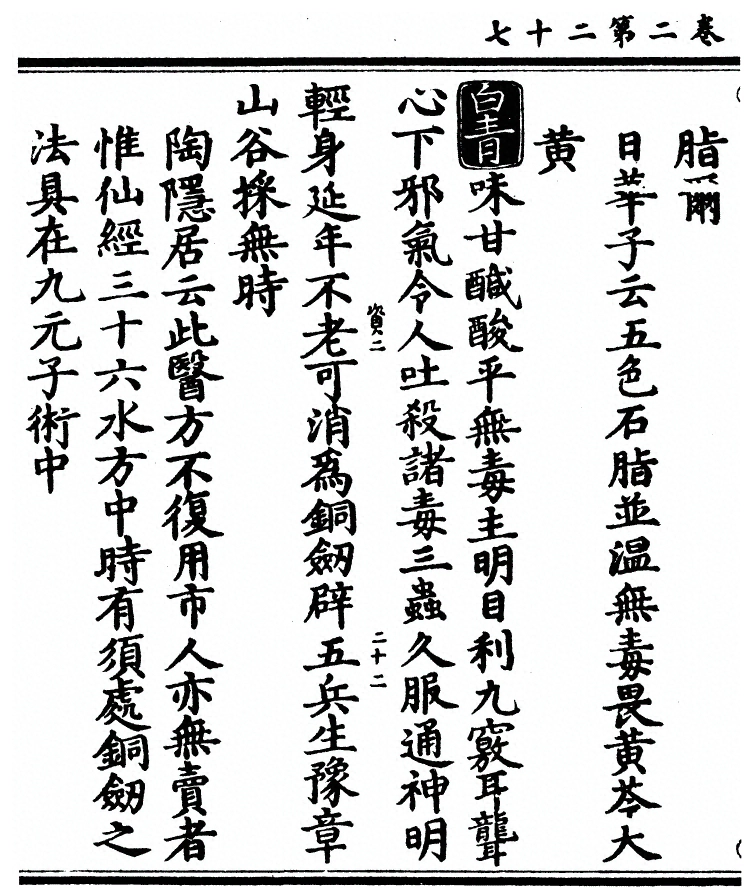 卷二第二十七
脂爾
日華子云五色石脂並溫無毒畏黃芩大
黃
白青味甘醎酸平無毒主明目利九竅耳聾
心下邪氣令人吐殺諸毒三蟲久服通神明
資二
二十二
輕身延年不老可消為銅劒辟五兵生豫章
山谷採無時
陶隱居云此醫方不復用市人亦無賣者
惟仙經三十六水方中時有須處銅劒之
法具在九元子術中